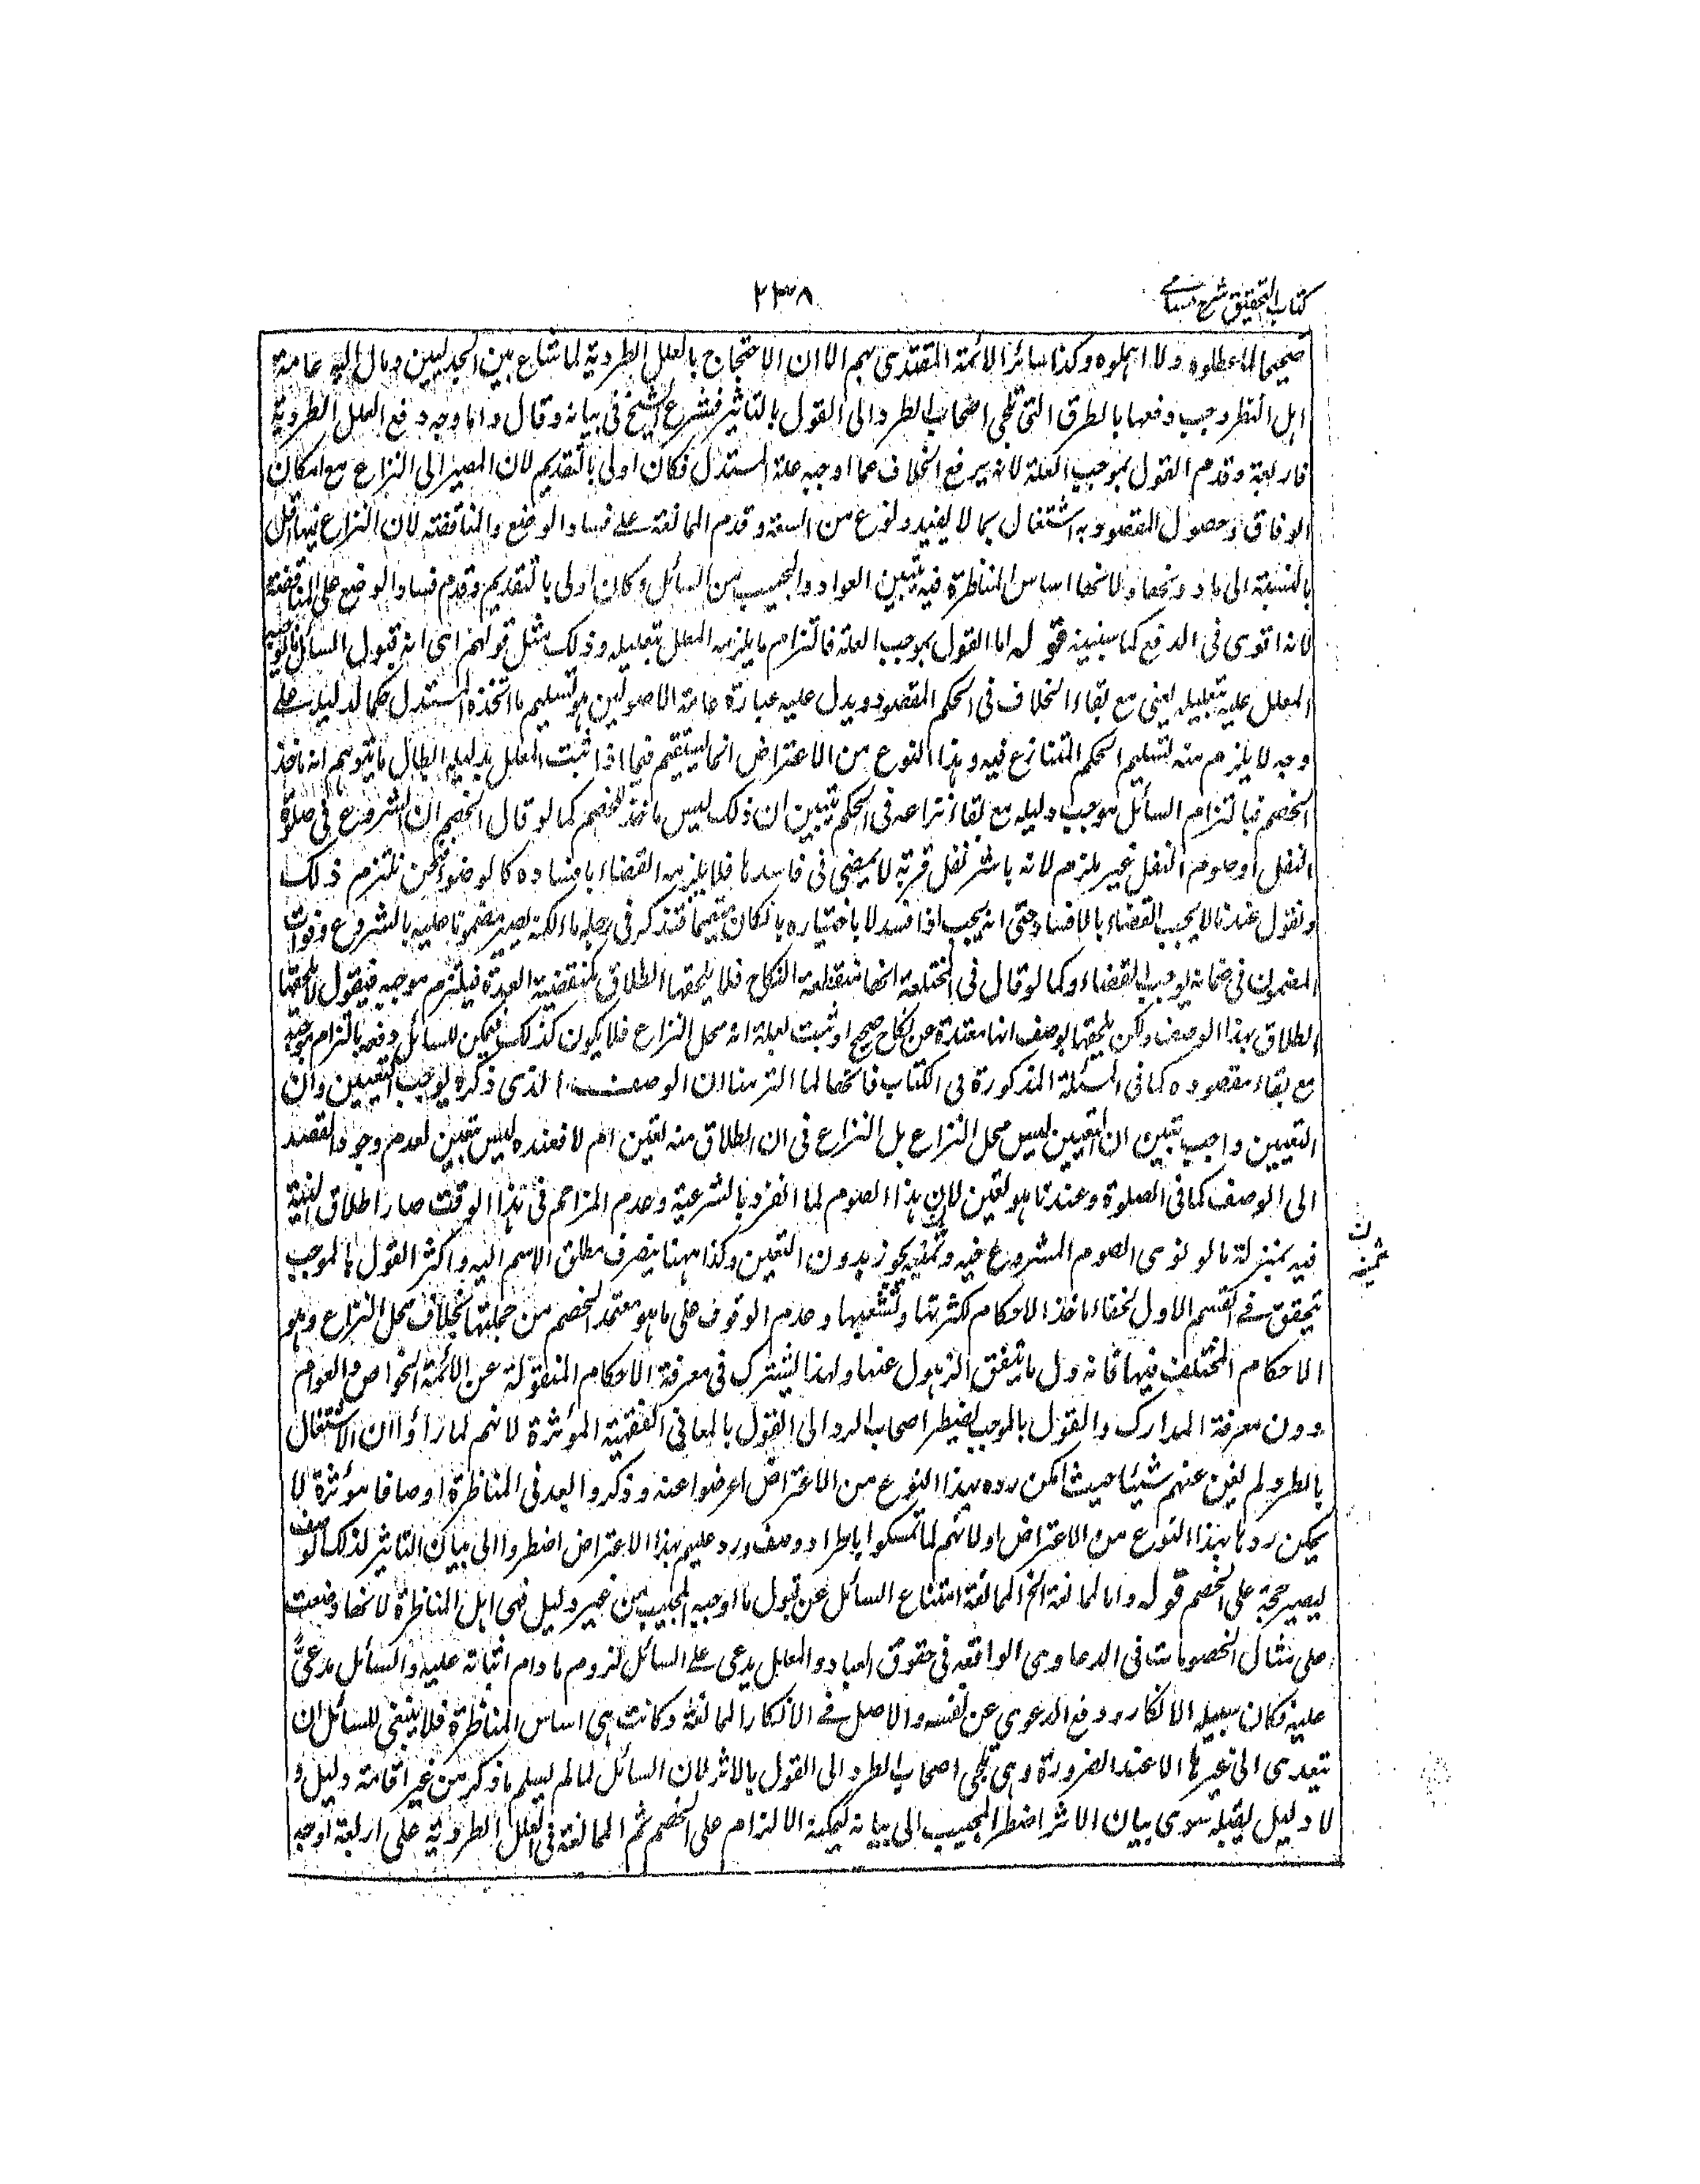 كتاب التحقيق شرح حسامے
٢٣٨
صحيحا لما عطلوه ولا اہملوه وكذا سائر الائمة المقتدى بہم الا ان الاحتجاج بالعلل الطردية لما شاع بين الجدليين ومال اليه عامة
اہل النظر وجب دفعها بالطرق التى تلجى اصحاب الطرد الى القول بالتاثير فشرع الشيخ فى بيانه وقال واما وجه دفع العلل الطردية
فاربعة وقدم القول بموجب العلة لانه يرفع الخلاف عما اوجبه علة المستدل فكان اولى بالتقديم لان المصير الى النزاع مع امكان
الوفاق وحصول المقصود به اشتغال بما لا يفيد ونوع من السفه وقدم الممانعة علے فساد الوضع والمناقضة لان النزاع فيها اقل
بالنسبة الى ما دونها ولانها اساس المناظرة فبه يتبين العوار والمجيب من السائل وكان اولى بالتقديم وقدم فساد الوضع على المناقضة
لانه اقوى فى الدفع كما سنبينه قوله اما القول بموجب العلة فالتزام ما يلزمه المعلل بتعليله وذلك مثل قولهم اى انه قبول السائل ما يوجبه
المعلل عليه بتعليله يعنى مع بقاء الخلاف فى الحكم المقصود ويدل عليه عبارة عامة الاصوليين هو تسليم ما اتخذه المستدل حكما لدليله علے
وجه لا يلزم منه تسليم الحكم المتنازع فيه وہذا النوع من الاعتراض انما يستقيم فيما اذا اثبت المعلل بدليله ابطال ما يتوهم انه ماخذ
الخصم فبالتزام السائل موجب دليله مع بقاء نزاعه فى الحكم يتبين ان ذلك ليس ماخذ الخصم كما لو قال الخصم ان الشروع فى صلوة
النفل او صوم النفل غير ملزم لانه باشر نفل قربة لا يمضى فى فاسدها فلا يلزمه القضاء بافساده كالوضوء فنحن نلتزم ذلك
ونقول عندنا لا يجب القضاء بالافساد حتى انه يجب اذا فسد لا باختياره بان كان متيمما فتذكر فى رحله ماء لكنه يصير مضمونا عليه بالشروع وفوات
المضمون فى ضمانه يوجب القضاء وكما لو قال فى المختلعة انها منقطعة النكاح فلا يلحقها الطلاق كمنقضية العدة فيلتزم موجبه فيقول لا يلحقها
الطلاق بہذا الوصف ولكن يلحقها بوصف انها معتدة عن نكاح صحيح او ثبت لعلة انه محل النزاع فلا يكون كذلك فيمكن للسائل دفعه بالتزام موجبه
مع بقاء مقصوده كما فى المسئلة المذكورة فى الكتاب فانها لما التزمنا ان الوصف الذى ذكره يوجب التعيين وان
التعيين واجب تبين ان التعيين ليس محل النزاع بل النزاع فى ان الطلاق منه تعين ام لا فعنده ليس بتعيين لعدم وجود القصد
الى الوصف كما فى الصلوة وعندنا هو تعين لان ہذا الصوم لما انفرد بالشرعية وعدم المزاحم فى ہذا الوقت صار اطلاق النية
فيه بمنزلة ما لو نوى الصوم المشروع فيه وثمنه يجوز بدون التعين وكذا ہہنا ينصرف مطلق الاسم اليه واكثر القول بالموجب
يتحقق فے القسم الاول لخفاء ماخذ الاحكام لكثرتها وتشعبها وعدم الوقوف على ما هو معتمد الخصم من جملتها بخلاف محل النزاع وہو
الاحكام المختلف فيها فانه ول ما يتفق الذهول عنها ولہذا يشترك فى معرفة الاحكام المنقولة عن الائمة الخواص والعوام
دون معرفة المدارك والقول بالموجب يضطر اصحاب الرد الى القول بالمعانى الفقهية المؤثرة لانهم لما راؤا ان الاشتغال
بالطرد لم يغن عنهم شيئا حيث امكن رده بہذا النوع من الاعتراض اعرضوا عنه وذكروا بعد فى المناظرة اوصافا مؤثرة لا
يمكن ردها بہذا النوع من الاعتراض او لانهم لما تمسكوا باطراد وصف ورد عليهم ہذا الاعتراض اضطروا الى بيان التاثير لذلك الوصف
ليصير حجة على الخصم قوله واما الممانعة الخ الممانعة امتناع السائل عن قبول ما اوجبه المجيب من غير دليل فهى اہل المناظرة لانها وضعت
على مثال الخصومات فى الدعاوى الواقعة فى حقوق العباد والمعلل يدعى علے السائل لزوم ما دام اثباته عليه والسائل مدعىً
عليه فكان سبيله الانكار ودفع الدعوي عن نفسه والاصل فے الانكار الممانعة وكانت ہى اساس المناظرة فلا ينبغى للسائل ان
يتعدى الى غيرها الا عند الضرورة وہى تلجى اصحاب الطرد الى القول بالاثر لان السائل لما لم يسلم ما ذكر من غير اقامة دليل و
لا دليل يقبله سوى بيان الاثر اضطر المجيب الى بيانه ليمكنه الالزام على الخصم ثم الممانعة فى العلل الطردية على اربعة اوجه